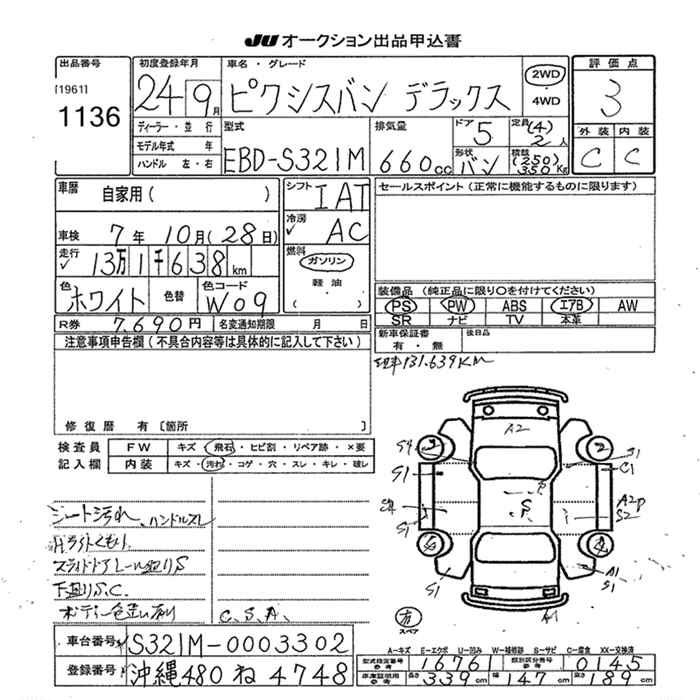 JU オークション出品申込書
出品番号
[1961]
1136
初度登録年月
24年9月
ディーラー・並行
モデル年式 年
ハンドル 左・右
車名・グレード
ピクシスバン デラックス
2WD
・4WD
評価点
3
外装 内装
C C
型式
EBD-S321M
排気量
660cc
ドア
5
形状
バン
定員(4)
2人
積載(250)
350Kg
車歴
自家用( )
車検 7年 10月(28日)
走行 13万1千638km
色
ホワイト
色替
色コード
W09
シフト
IAT
冷房
AC
燃料
ガソリン
軽油
( )
セールスポイント(正常に機能するものに限ります)
装備品(純正品に限り○を付けてください)
PS PW ABS エアB AW
SR ナビ TV 本革
新車保証書
有・無
後日品
R券 7,690円 名変通知期限 月 日
注意事項申告欄(不具合内容等は具体的に記入して下さい)
修復歴 有〔箇所
131.639KM
検査員
記入欄
FW キズ・飛石・ヒビ割・リペア跡・×要
内装 キズ・汚れ・コゲ・穴・スレ・キレ・破レ
シート汚れ、ハンドルスレ
Hライトくもり
スライドドアレール廻りS
下廻りS.C.
ボディー色違い有り
C.S.A.
A2
S1
C1
A2P
S2
A1
S1
S1
S1
A1
スペア
車台番号 S321M-0003302
登録番号 沖縄480ね4748
A-キズ E-エクボ U-凹み W-補修跡 S-サビ C-腐食 XX-交換済
型式指定番号 16761 類別区分番号 0145
長さ339cm 幅147cm 高さ189cm